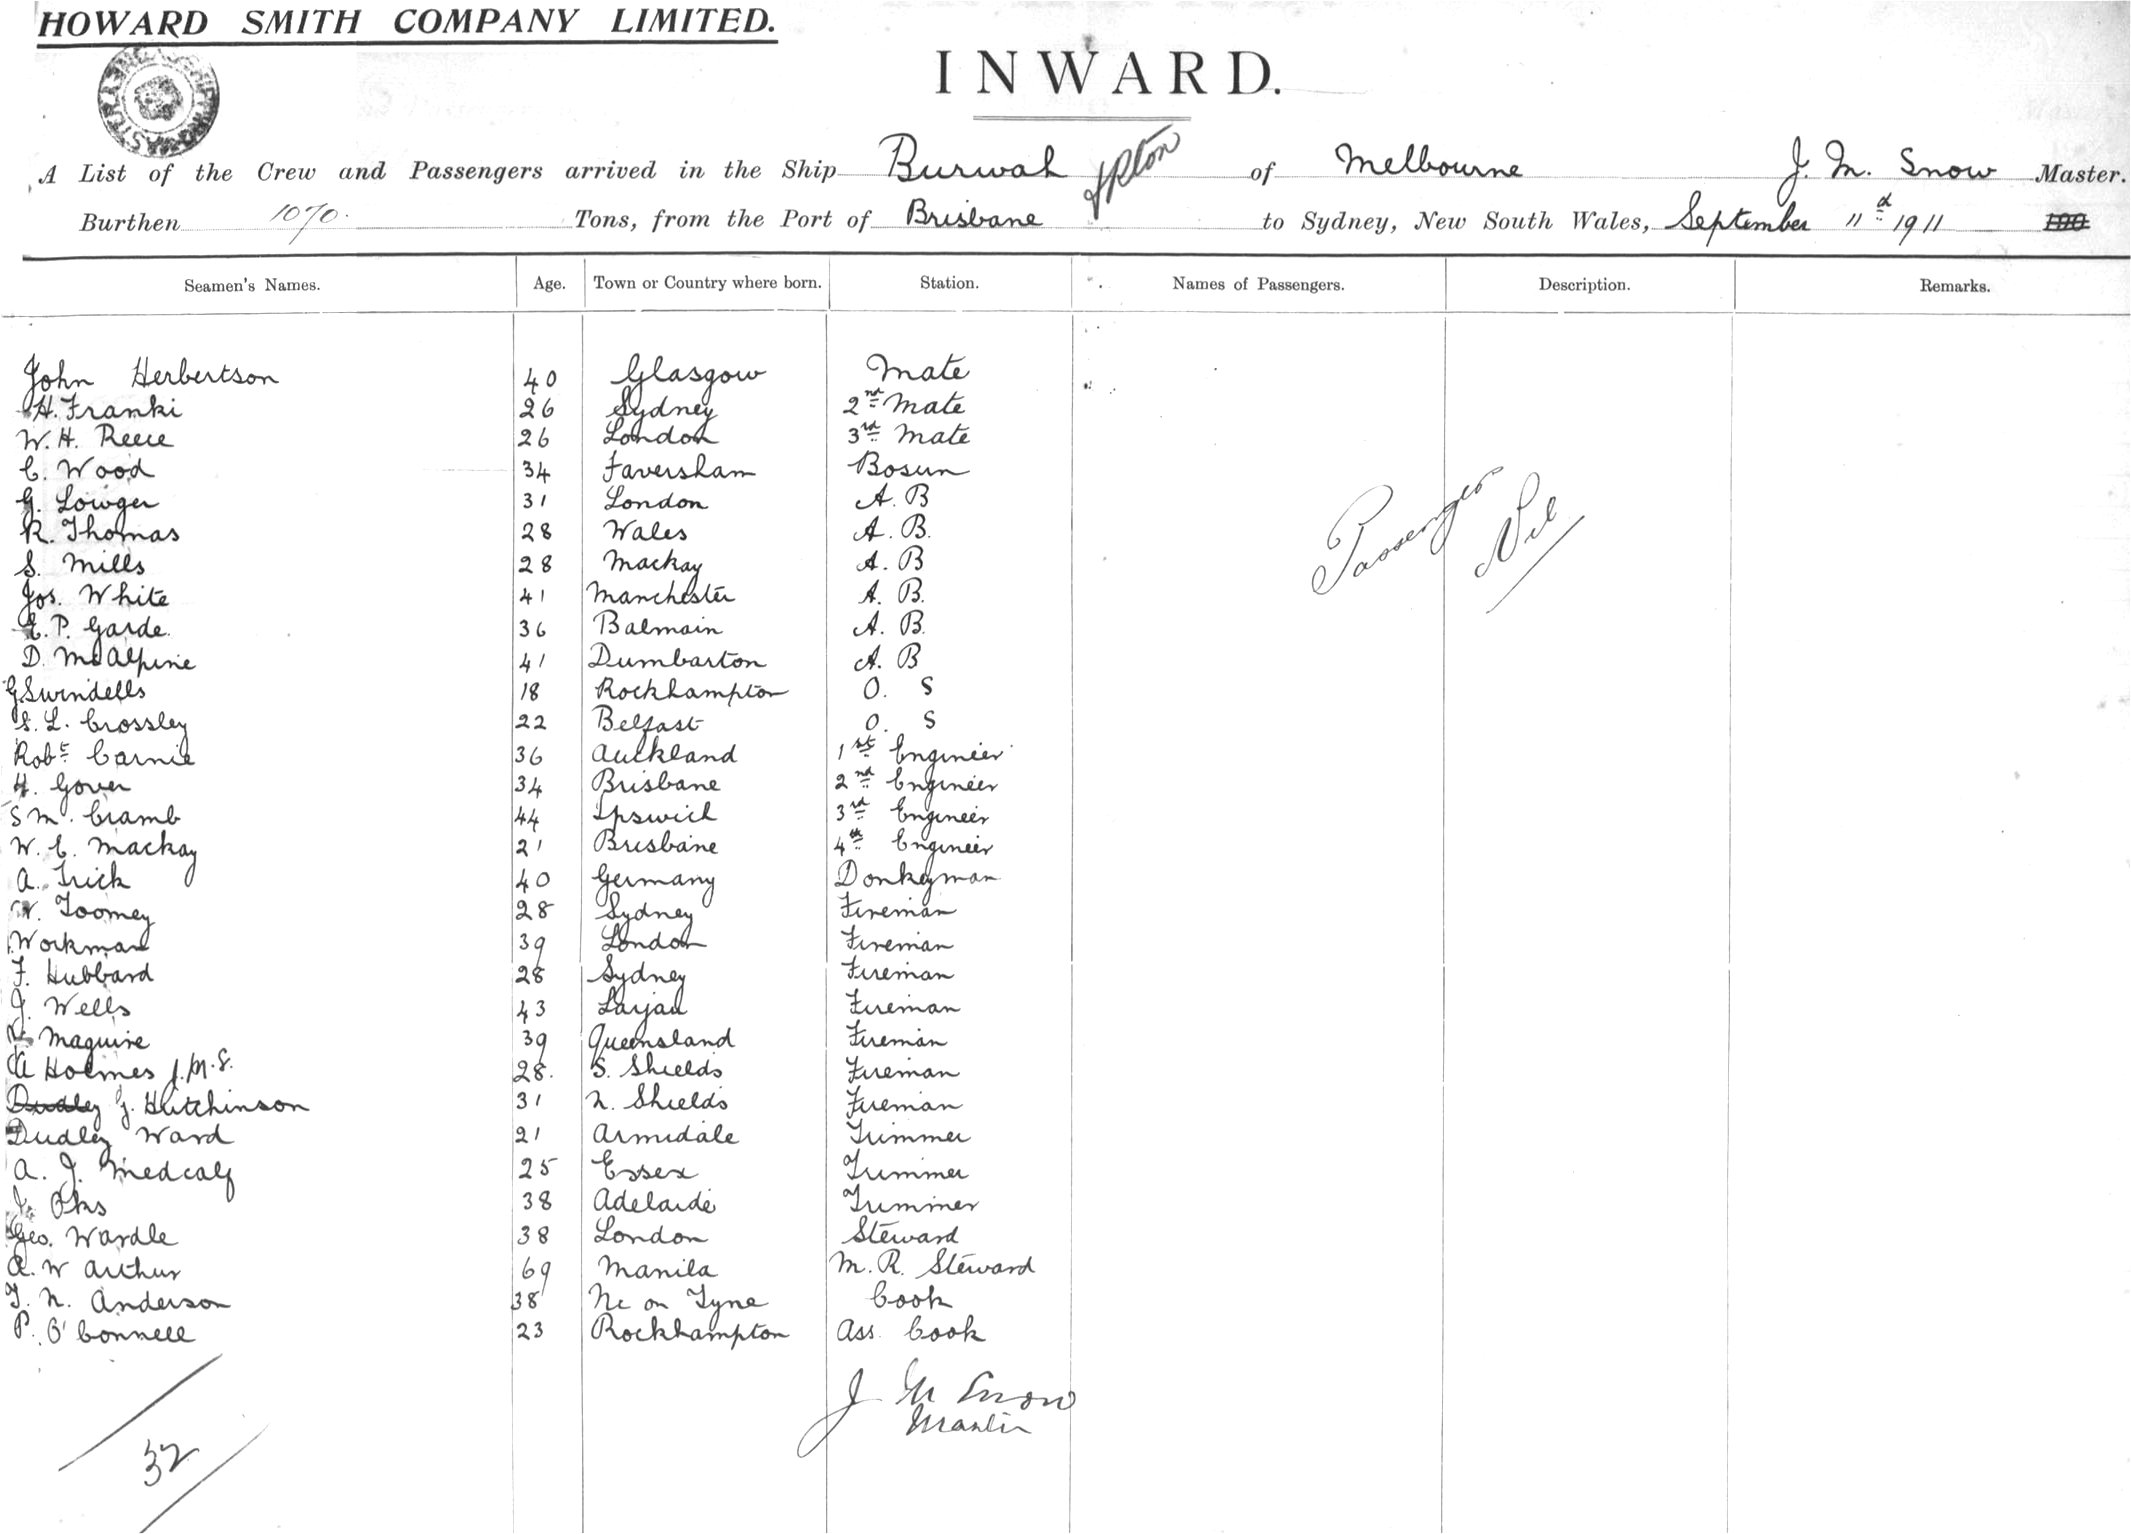 HOWARD SMITH COMPANY LIMITED.
INWARD.
A List of the Crew and Passengers arrived in the Ship Burwah of Melbourne J. M. Snow Master.
Burthen 1070 Tons, from the Port of Brisbane to Sydney, New South Wales, September 11th 1911 190
Seamen's Names. Age. Town or Country where born. Station. Names of Passengers. Description. Remarks.
John Herbertson 40 Glasgow Mate
H. Franki 26 Sydney 2nd Mate
W. H. Reece 26 London 3rd Mate
C. Wood 34 Faversham Bosun
G. Lowger 31 London A. B
R. Thomas 28 Wales A. B.
S. Mills 28 Mackay A. B
Jos. White 41 Manchester A. B.
E. P. Garde. 36 Balmain A. B.
D. McAlpine 41 Dumbarton A. B
G Swindells 18 Rockhampton O. S
S. L. Crossley 22 Belfast O. S
Robt Carnie 36 Auckland 1st Engineer
H. Gover 34 Brisbane 2nd Engineer
S M. Cramb 44 Ipswich 3rd Engineer
W. C. Mackay 21 Brisbane 4th Engineer
A. Frick 40 Germany Donkeyman
W. Toomey 28 Sydney Fireman
Workman 39 London Fireman
F. Hubbard 28 Sydney Fireman
J. Wells 43 Fireman
Maguire 39 Queensland Fireman
Holmes J.M.S. 28. S. Shields Fireman
Dudley J. Hutchinson 31 N. Shields Fireman
Dudley Ward 21 Armidale Trimmer
A. J. Medcalf 25 Essex Trimmer
J. Oks 38 Adelaide Trimmer
Geo. Wardle 38 London Steward
A. W Arthur 69 Manila M. R. Steward
T. N. Anderson 38 Nc on Tyne Cook
P. O'Connell 23 Rockhampton Ass. Cook
Passengers Nil
J M Snow
Master
32